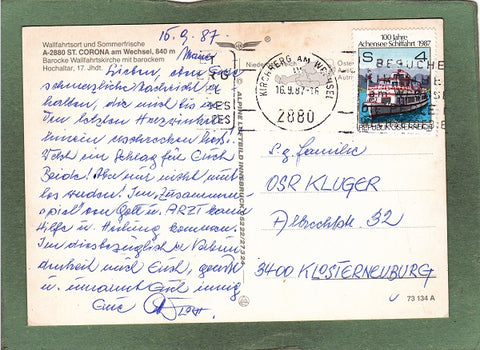 15.9.87.
Wallfahrtsort und Sommerfrische
A-2880 ST. CORONA am Wechsel, 840 m
Barocke Wallfahrtskirche mit barockem
Hochaltar, 17. Jhdt.
Meine
Lieben, eben Eure
schmerzliche Nachricht er-
halten, die mich bis in
den letzten Herzwinkel
hinein erschrocken ließ.
Welch ein Schlag für Euch
Beide! Aber nur nicht mut-
los werden! Im Zusammen-
spiel von Gott u. ARZT kann
Hilfe u. Heilung kommen.
Im diesbezüglich
mit Euch, grüßt
u. umarmt Euch innig
Eure
ALPINE LUFTBILD INNSBRUCK
KIRCHBERG AM WECHSEL
16.9.87-16
2880
BESUCHE
100 Jahre
Achensee Schiffahrt 1987
S 4
REPUBLIK ÖSTERREICH
s.g. Familie
OSR KLUGER
Albrechtstr. 32
3400 KLOSTERNEUBURG
73 134 A